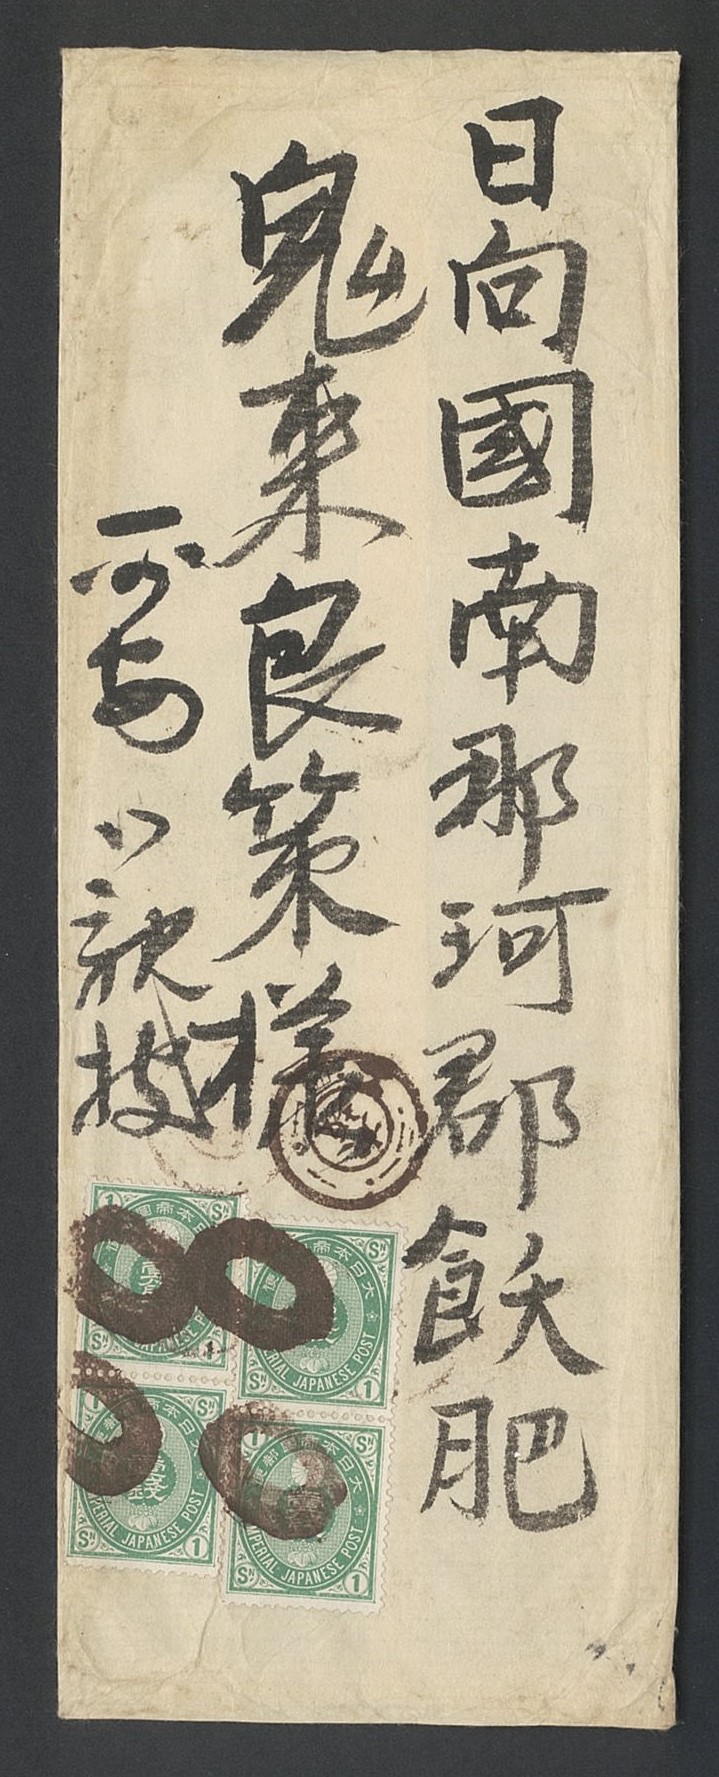 日向國南那珂郡飫肥
鬼束良策様
大日本帝國郵便
IMPERIAL JAPANESE POST
1 Sn
大日本帝國郵便
IMPERIAL JAPANESE POST
1 Sn
大日本帝國郵便
IMPERIAL JAPANESE POST
1 Sn
大日本帝國郵便
IMPERIAL JAPANESE POST
1 Sn